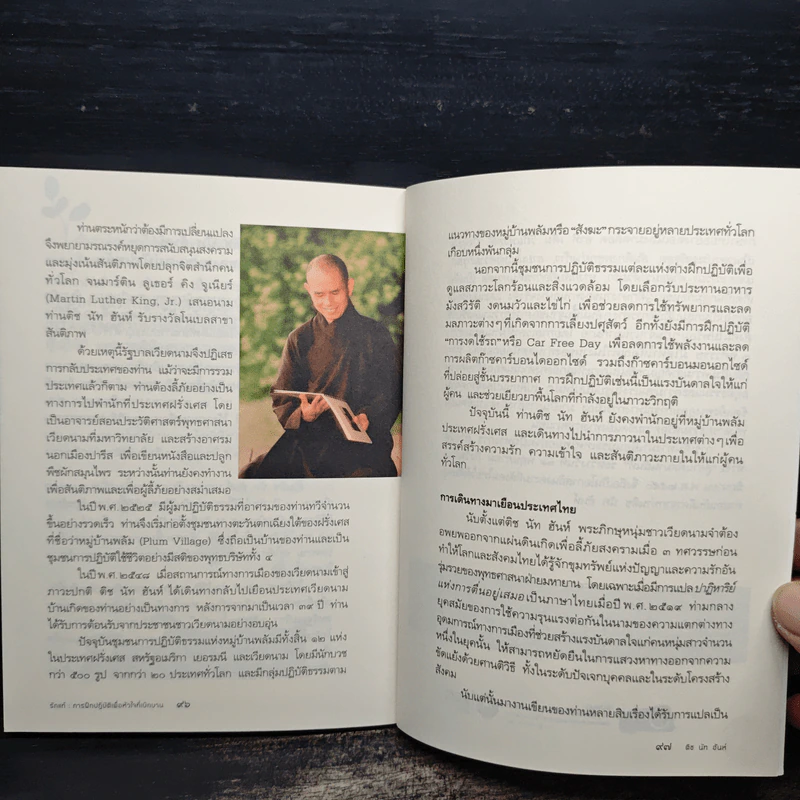 ท่านตระหนักว่าต้องมีการเปลี่ยนแปลง
จึงพยายามรณรงค์หยุดการสนับสนุนสงคราม
และมุ่งเน้นสันติภาพโดยปลุกจิตสำนึกคน
ทั่วโลก จนมาร์ติน ลูเธอร์ คิง จูเนียร์
(Martin Luther King, Jr.) เสนอนาม
ท่านติช นัท ฮันห์ รับรางวัลโนเบลสาขา
สันติภาพ
ด้วยเหตุนี้รัฐบาลเวียดนามจึงปฏิเสธ
การกลับประเทศของท่าน แม้ว่าจะมีการรวม
ประเทศแล้วก็ตาม ท่านต้องลี้ภัยอย่างเป็น
ทางการไปพำนักที่ประเทศฝรั่งเศส โดย
เป็นอาจารย์สอนประวัติศาสตร์พุทธศาสนา
เวียดนามที่มหาวิทยาลัย และสร้างอาศรม
นอกเมืองปารีส เพื่อเขียนหนังสือและปลูก
พืชผักสมุนไพร ระหว่างนั้นท่านยังคงทำงาน
เพื่อสันติภาพและเพื่อผู้ลี้ภัยอย่างสม่ำเสมอ
ในปีพ.ศ.๒๕๒๕ มีผู้มาปฏิบัติธรรมที่อาศรมของท่านทวีจำนวน
ขึ้นอย่างรวดเร็ว ท่านจึงเริ่มก่อตั้งชุมชนทางตะวันตกเฉียงใต้ของฝรั่งเศส
ที่ชื่อว่าหมู่บ้านพลัม (Plum Village) ซึ่งถือเป็นบ้านของท่านและเป็น
ชุมชนการปฏิบัติใช้ชีวิตอย่างมีสติของพุทธบริษัททั้ง ๔
ในปีพ.ศ.๒๕๔๘ เมื่อสถานการณ์ทางการเมืองของเวียดนามเข้าสู่
ภาวะปกติ ติช นัท ฮันห์ ได้เดินทางกลับไปเยือนประเทศเวียดนาม
บ้านเกิดของท่านอย่างเป็นทางการ หลังการจากมาเป็นเวลา ๓๙ ปี ท่าน
ได้รับการต้อนรับจากประชาชนชาวเวียดนามอย่างอบอุ่น
ปัจจุบันชุมชนการปฏิบัติธรรมแห่งหมู่บ้านพลัมมีทั้งสิ้น ๑๒ แห่ง
ในประเทศฝรั่งเศส สหรัฐอเมริกา เยอรมนี และเวียดนาม โดยมีนักบวช
กว่า ๕๐๐ รูป จากกว่า ๒๐ ประเทศทั่วโลก และมีกลุ่มปฏิบัติธรรมตาม
รักแท้ : การฝึกปฏิบัติเพื่อหัวใจที่เบิกบาน ๙๖
แนวทางของหมู่บ้านพลัมหรือ “สังฆะ” กระจายอยู่หลายประเทศทั่วโลก
เกือบหนึ่งพันกลุ่ม
นอกจากนี้ชุมชนการปฏิบัติธรรมแต่ละแห่งต่างฝึกปฏิบัติเพื่อ
ดูแลสภาวะโลกร้อนและสิ่งแวดล้อม โดยเลือกรับประทานอาหาร
มังสวิรัติ งดนมวัวและไข่ไก่ เพื่อช่วยลดการใช้ทรัพยากรและลด
มลภาวะต่างๆที่เกิดจากการเลี้ยงปศุสัตว์ อีกทั้งยังมีการฝึกปฏิบัติ
“การงดใช้รถ”หรือ Car Free Day เพื่อลดการใช้พลังงานและลด
การผลิตก๊าซคาร์บอนไดออกไซด์ รวมถึงก๊าซคาร์บอนมอนอกไซด์
ที่ปล่อยสู่ชั้นบรรยากาศ การฝึกปฏิบัติเช่นนี้เป็นแรงบันดาลใจให้แก่
ผู้คน และช่วยเยียวยาพื้นโลกที่กำลังอยู่ในภาวะวิกฤติ
ปัจจุบันนี้ ท่านติช นัท ฮันห์ ยังคงพำนักอยู่ที่หมู่บ้านพลัม
ประเทศฝรั่งเศส และเดินทางไปนำการภาวนาในประเทศต่างๆเพื่อ
สรรค์สร้างความรัก ความเข้าใจ และสันติภาวะภายในให้แก่ผู้คน
ทั่วโลก
การเดินทางมาเยือนประเทศไทย
นับตั้งแต่ติช นัท ฮันห์ พระภิกษุหนุ่มชาวเวียดนามจำต้อง
อพยพออกจากแผ่นดินเกิดเพื่อลี้ภัยสงครามเมื่อ ๓ ทศวรรษก่อน
ทำให้โลกและสังคมไทยได้รู้จักขุมทรัพย์แห่งปัญญาและความรักอัน
รุ่มรวยของพุทธศาสนาฝ่ายมหายาน โดยเฉพาะเมื่อมีการแปล ปาฏิหาริย์
แห่งการตื่นอยู่เสมอ เป็นภาษาไทยเมื่อปี พ.ศ. ๒๕๑๙ ท่ามกลาง
ยุคสมัยของการใช้ความรุนแรงต่อกันในนามของความแตกต่างทาง
อุดมการณ์ทางการเมืองที่ช่วยสร้างแรงบันดาลใจแก่คนหนุ่มสาวจำนวน
หนึ่งในยุคนั้น ให้สามารถหยัดยืนในการแสวงหาทางออกจากความ
ขัดแย้งด้วยศานติวิธี ทั้งในระดับปัจเจกบุคคลและในระดับโครงสร้าง
สังคม
นับแต่นั้นมางานเขียนของท่านหลายสิบเรื่องได้รับการแปลเป็น
๙๗ ติช นัท ฮันห์